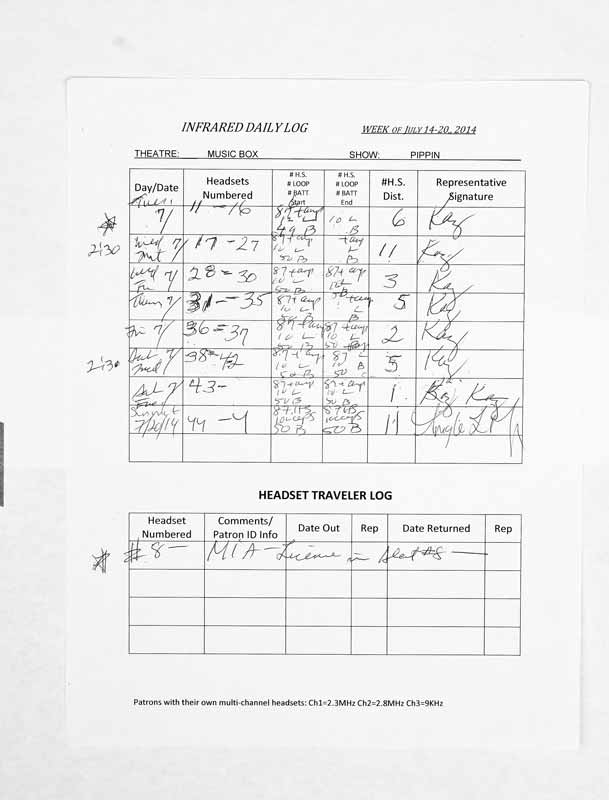 INFRARED DAILY LOG WEEK OF JULY 14-20, 2014
THEATRE: MUSIC BOX SHOW: PIPPIN
Day/Date Headsets Numbered # H.S. # LOOP # BATT Start # H.S. # LOOP # BATT End #H.S. Dist. Representative Signature
Tues. 7/ 11-16 87+amp 10 L 6 Kay
2:30 Wed 7/ Mat 17-27 87+amp 10 L 50 B +amp L B 11 Kay
Wed 7/ 28-30 87+amp 10 L 50 B 87+amp 3 Kay
Thurs 7/ 31-35 87+amp 10 L 5 Kay
Fri 7/ 36-37 87+amp 10 L 50 B 87+amp 10 L 2 Kay
2:30 Sat 7/ 38-42 87+amp 10 L 50 B 87 10 L 5 Kay
Sat 7/ 43- 87+amp 10 L 50 B 87+amp 10 L 50 B 1 Kay
7/20/14 44-4 50 B 50 B 11
HEADSET TRAVELER LOG
Headset Numbered Comments/ Patron ID Info Date Out Rep Date Returned Rep
#8- MIA-License in
Patrons with their own multi-channel headsets: Ch1=2.3MHz Ch2=2.8MHz Ch3=9KHz